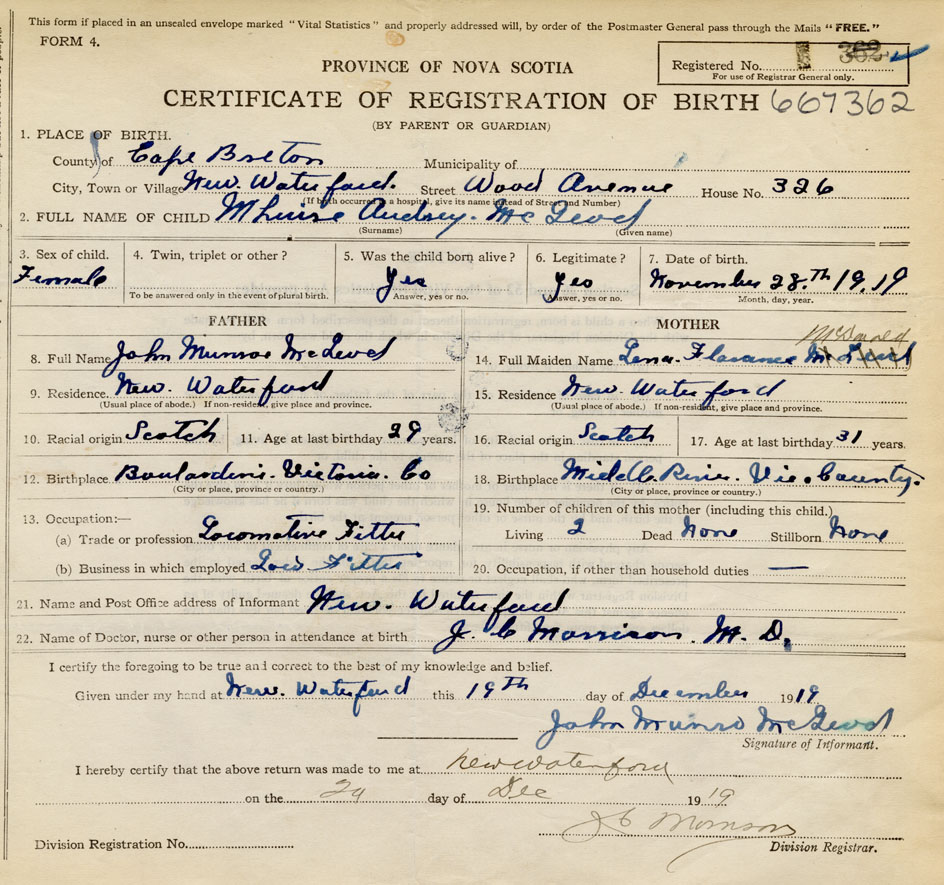 This form if placed in an unsealed envelope marked "Vital Statistics" and properly addressed will, by order of the Postmaster General pass through the Mails "FREE."
FORM 4.
Registered No. 362
For use of Registrar General only.
PROVINCE OF NOVA SCOTIA
CERTIFICATE OF REGISTRATION OF BIRTH 667362
(BY PARENT OR GUARDIAN)
1. PLACE OF BIRTH.
County of Cape Breton Municipality of
City, Town or Village New. Waterford. Street Wood Avenue House No. 326
(If birth occurred in a hospital, give its name instead of Street and Number)
2. FULL NAME OF CHILD Audrey. McLeod
(Surname) (Given name)
3. Sex of child. 4. Twin, triplet or other ? 5. Was the child born alive ? 6. Legitimate ? 7. Date of birth.
Female Yes Yes November 28.th 19.19
To be answered only in the event of plural birth. Answer, yes or no. Answer, yes or no. Month, day, year.
FATHER
8. Full Name John Munroe McLeod
9. Residence New. Waterford
(Usual place of abode.) If non-resident, give place and province.
10. Racial origin Scotch 11. Age at last birthday 29 years.
12. Birthplace Boularderi. Victoria. Co
(City or place, province or country.)
13. Occupation:—
(a) Trade or profession Locomotive Fitter
(b) Business in which employed Fitter
MOTHER
McDonald
14. Full Maiden Name Lena. Florance McLeod
15. Residence New. Waterford
(Usual place of abode.) If non-resident, give place and province.
16. Racial origin Scotch 17. Age at last birthday 31 years.
18. Birthplace Middle River. Vic. County.
(City or place, province or country.)
19. Number of children of this mother (including this child.)
Living 2 Dead None Stillborn None
20. Occupation, if other than household duties —
21. Name and Post Office address of Informant New. Waterford
22. Name of Doctor, nurse or other person in attendance at birth J. C Morrison. M. D.
I certify the foregoing to be true and correct to the best of my knowledge and belief.
Given under my hand at New. Waterford this 19th day of December 1919
John Munro McLeod
Signature of Informant.
I hereby certify that the above return was made to me at New Waterford
on the day of Dec 1919
J C Morrison
Division Registration No. Division Registrar.